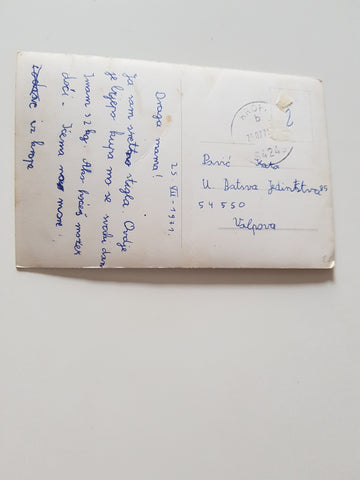 25 VII - 1971.
Draga mama!
Ja sam sretno stigla. Ovdje
je lijepo kupamo se svaki dan
Imam 32 kg. Ako hoćeš možeš
doći - Jedna
Pavić Kata
U. Batsva Jedinstva 85
54550
Valpova